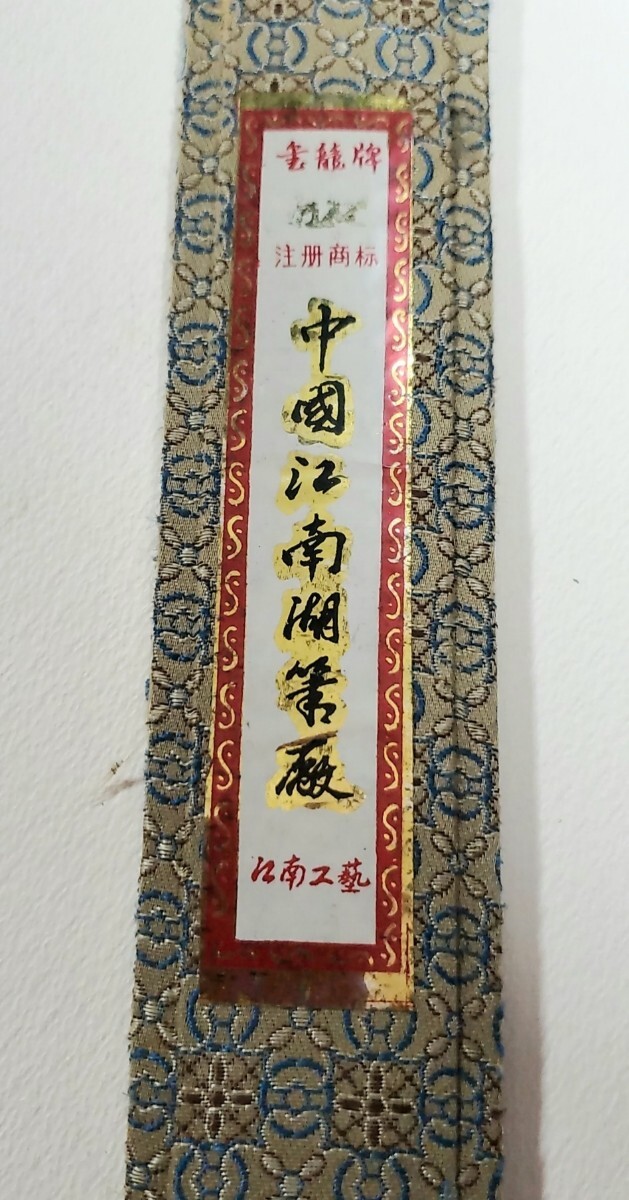 書龍牌
注册商标
中國江南湖筆廠
江南工藝